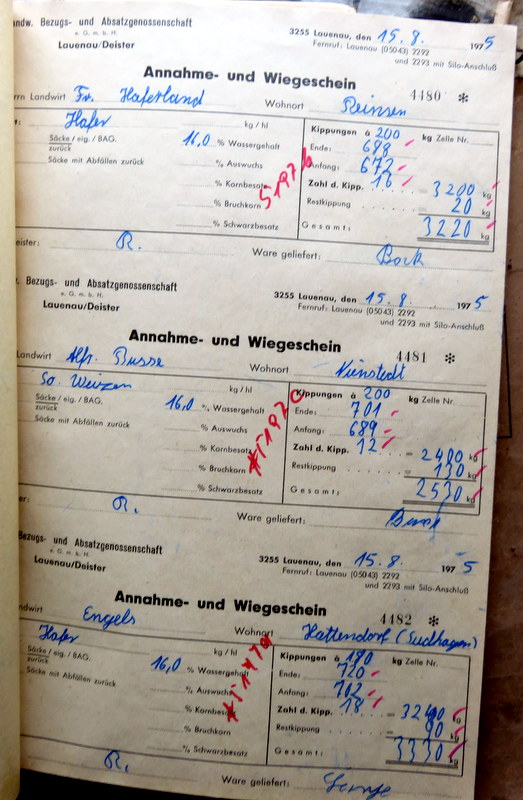 ndw. Bezugs- und Absatzgenossenschaft
e. G. m. b. H.
Lauenau/Deister
3255 Lauenau, den 15.8. 1975
Fernruf: Lauenau (05043) 2292
und 2293 mit Silo-Anschluß
Annahme- und Wiegeschein
4480 *
rrn Landwirt Fr. Haferland Wohnort Reinsen
Hafer kg / hl
Säcke / eig. / BAG. 16,0 % Wassergehalt
zurück
Säcke mit Abfällen zurück % Auswuchs
% Kornbesatz
% Bruchkorn
% Schwarzbesatz
Kippungen à 200 kg Zelle Nr.
Ende: 688
Anfang: 672
Zahl d. Kipp. 16 = 3200 kg
Restkippung 20 kg
Gesamt: 3220 kg
eister: R. Ware geliefert: Bock
Bezugs- und Absatzgenossenschaft
e. G. m. b. H.
Lauenau/Deister
3255 Lauenau, den 15.8. 1975
Fernruf: Lauenau (05043) 2292
und 2293 mit Silo-Anschluß
Annahme- und Wiegeschein
4481 *
Landwirt Alfr. Busse Wohnort Nienstedt
So. Weizen kg / hl
Säcke / eig. / BAG. 16,0 % Wassergehalt
zurück
Säcke mit Abfällen zurück % Auswuchs
% Kornbesatz
% Bruchkorn
% Schwarzbesatz
Kippungen à 200 kg Zelle Nr.
Ende: 701
Anfang: 689
Zahl d. Kipp. 12 = 2400 kg
Restkippung 130 kg
Gesamt: 2530 kg
er: R. Ware geliefert:
Bezugs- und Absatzgenossenschaft
e. G. m. b. H.
Lauenau/Deister
3255 Lauenau, den 15.8. 1975
Fernruf: Lauenau (05043) 2292
und 2293 mit Silo-Anschluß
Annahme- und Wiegeschein
4482 *
ndwirt Engels Wohnort Hattendorf (Sudhagen)
Hafer kg / hl
Säcke / eig. / BAG. 16,0 % Wassergehalt
zurück
Säcke mit Abfällen zurück % Auswuchs
% Kornbesatz
% Bruchkorn
% Schwarzbesatz
Kippungen à 180 kg Zelle Nr.
Ende: 720
Anfang: 702
Zahl d. Kipp. 18 = 3240 kg
Restkippung 90 kg
Gesamt: 3330 kg
R. Ware geliefert: